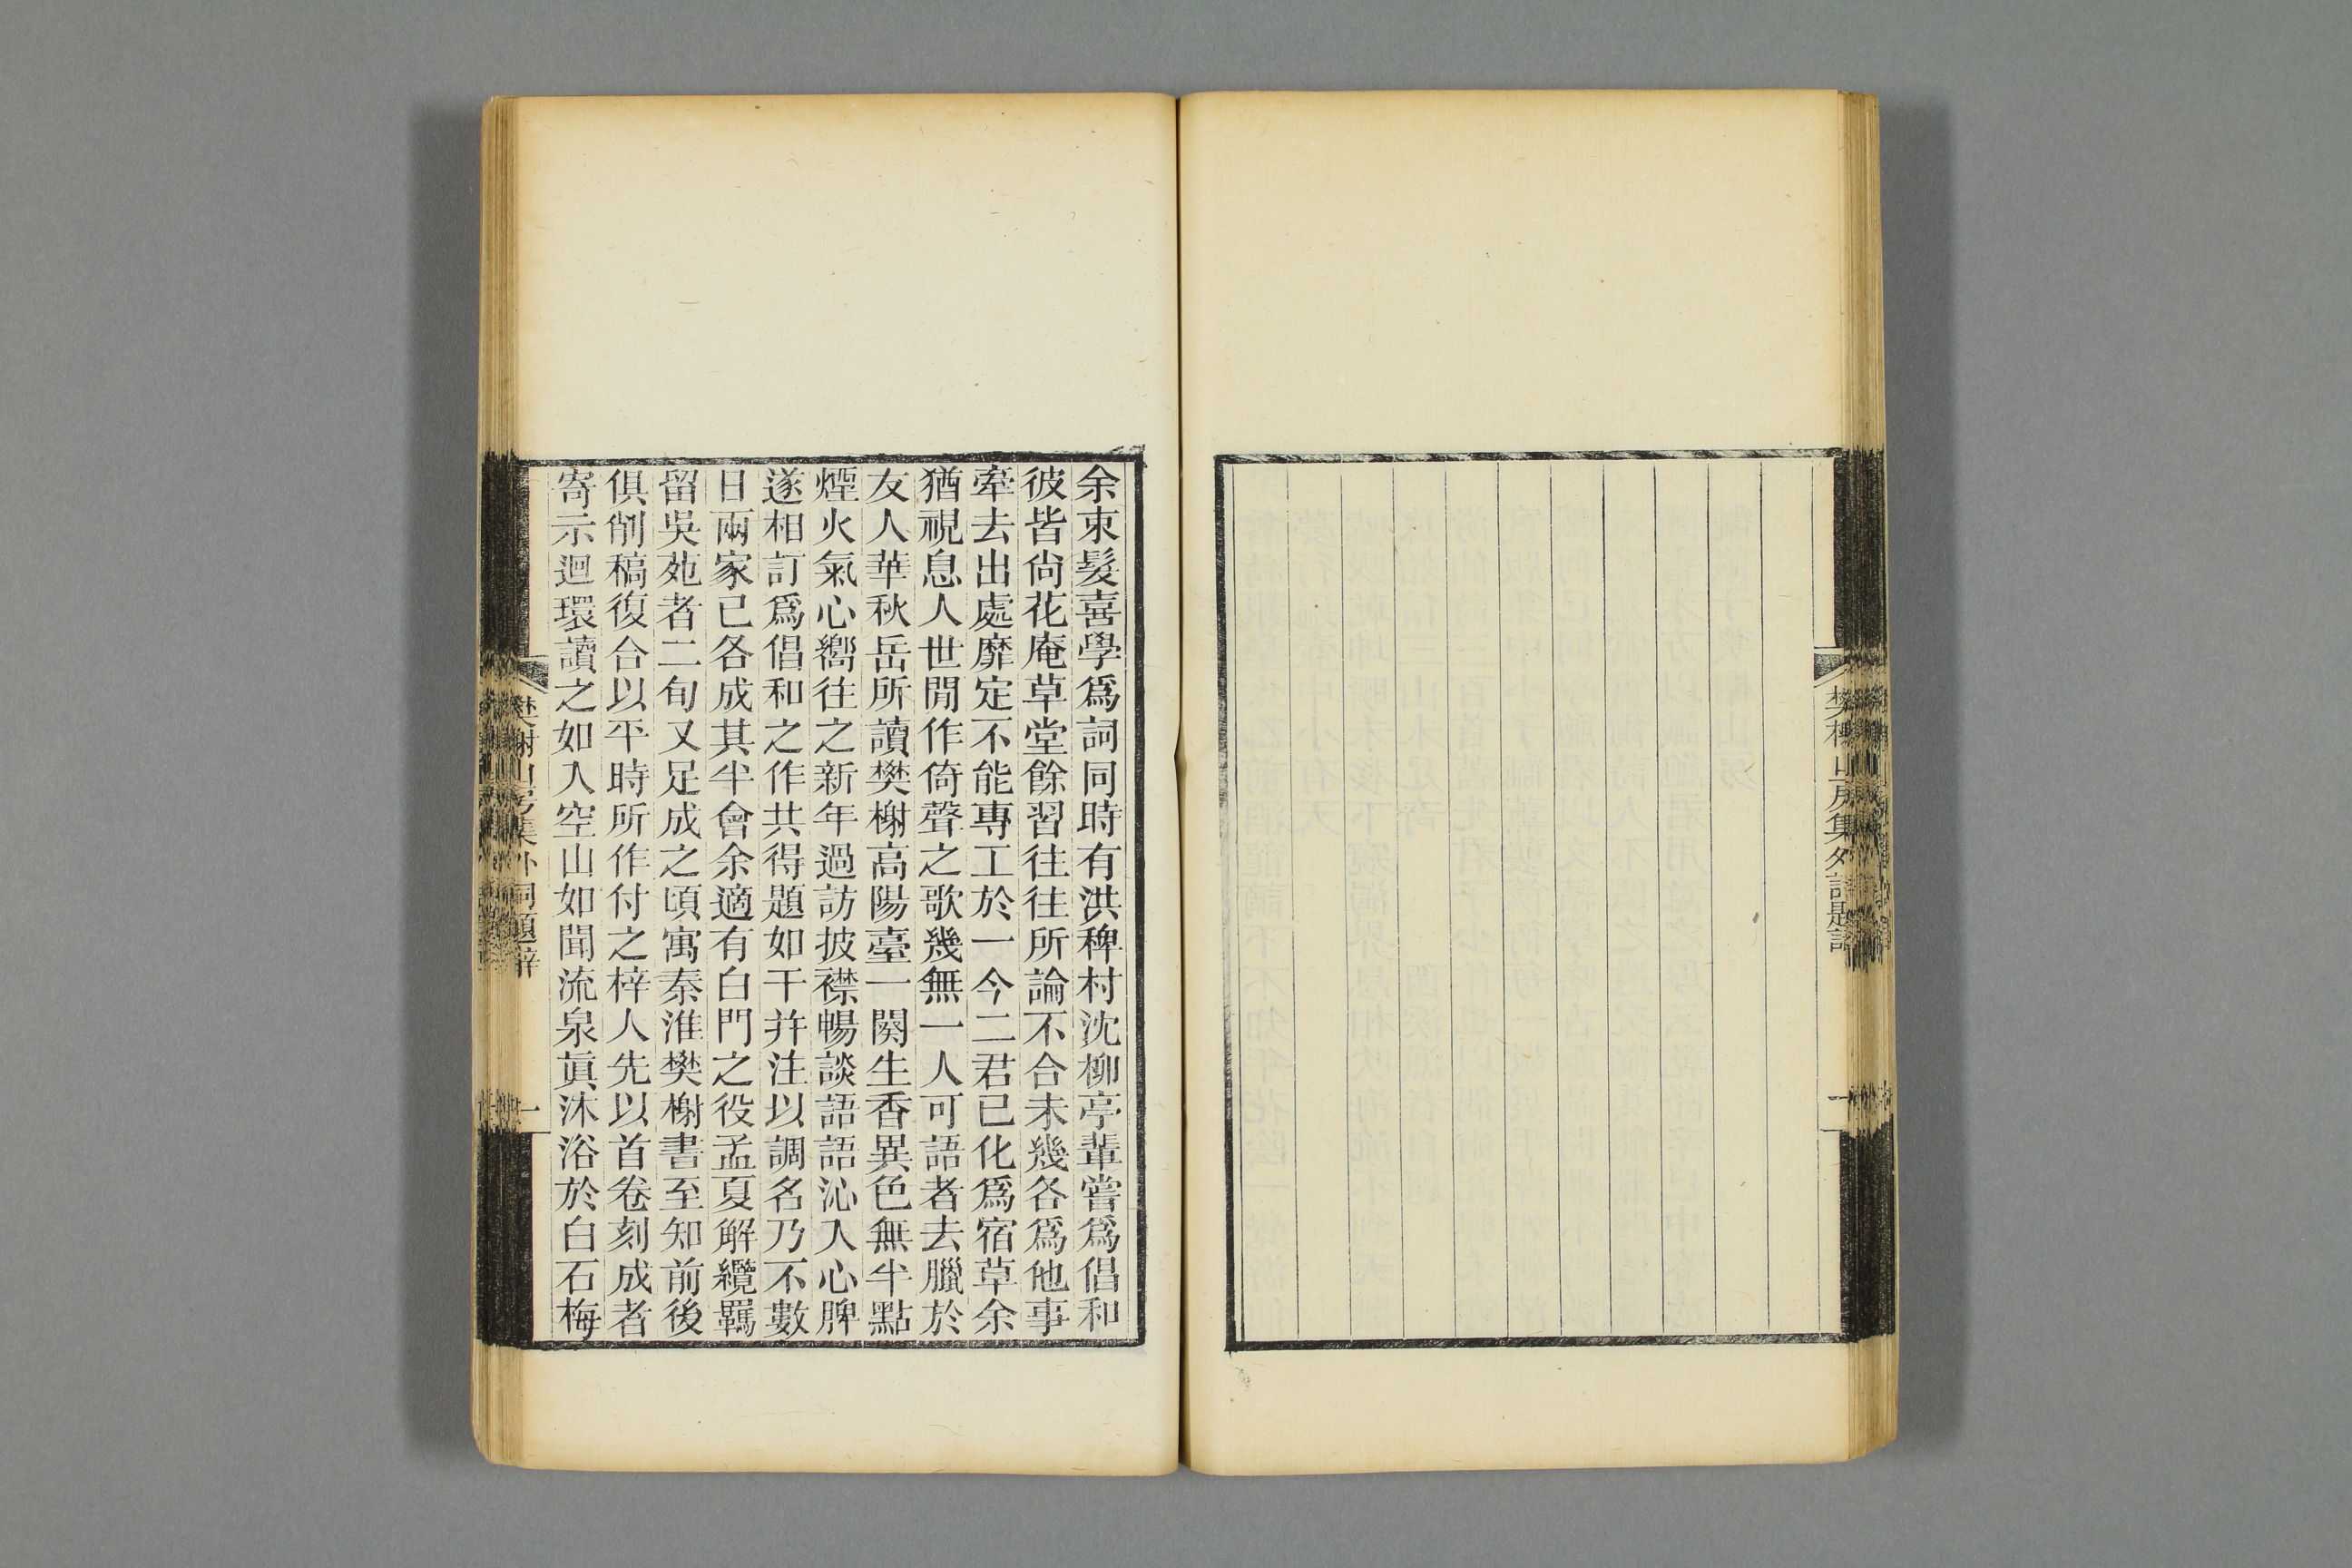 樊榭山房集外詞題詞
一
余束髮喜學爲詞同時有洪稗村沈柳亭輩嘗爲倡和
彼皆尙花庵草堂餘習往往所論不合未幾各爲他事
牽去出處靡定不能專工於一今二君已化爲宿草余
猶視息人世閒作倚聲之歌幾無一人可語者去臘於
友人華秋岳所讀樊榭高陽臺一闋生香異色無半點
煙火氣心嚮往之新年過訪披襟暢談語語沁人心脾
遂相訂爲倡和之作共得題如干幷注以調名乃不數
日兩家已各成其半會余適有白門之役孟夏解纜羈
留吳苑者二旬又足成之頃寓秦淮樊榭書至知前後
俱削稿復合以平時所作付之梓人先以首卷刻成者
寄示迴環讀之如入空山如聞流泉眞沐浴於白石梅
樊榭山房集外詞題辭
一